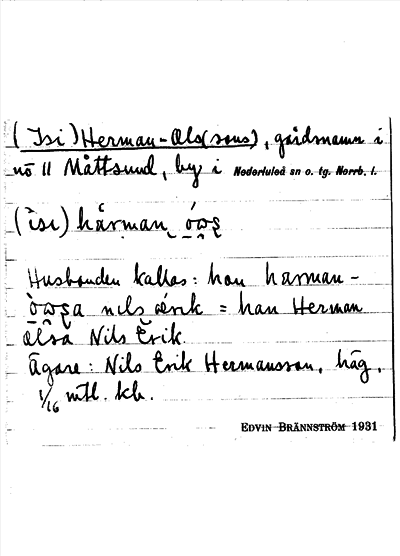 (Isi) Herman-Ols(sons), gårdsnamn i
nö 11 Måttsund, by i Nederluleå sn o. tg. Norrb. l.
(ìsi) hårman
Husbonden kallas: han harman-
nils = han Herman
Nils Erik.
Ägare: Nils Erik Hermansson, häg.
1/16 mtl. kb.
EDVIN BRÄNNSTRÖM 1931